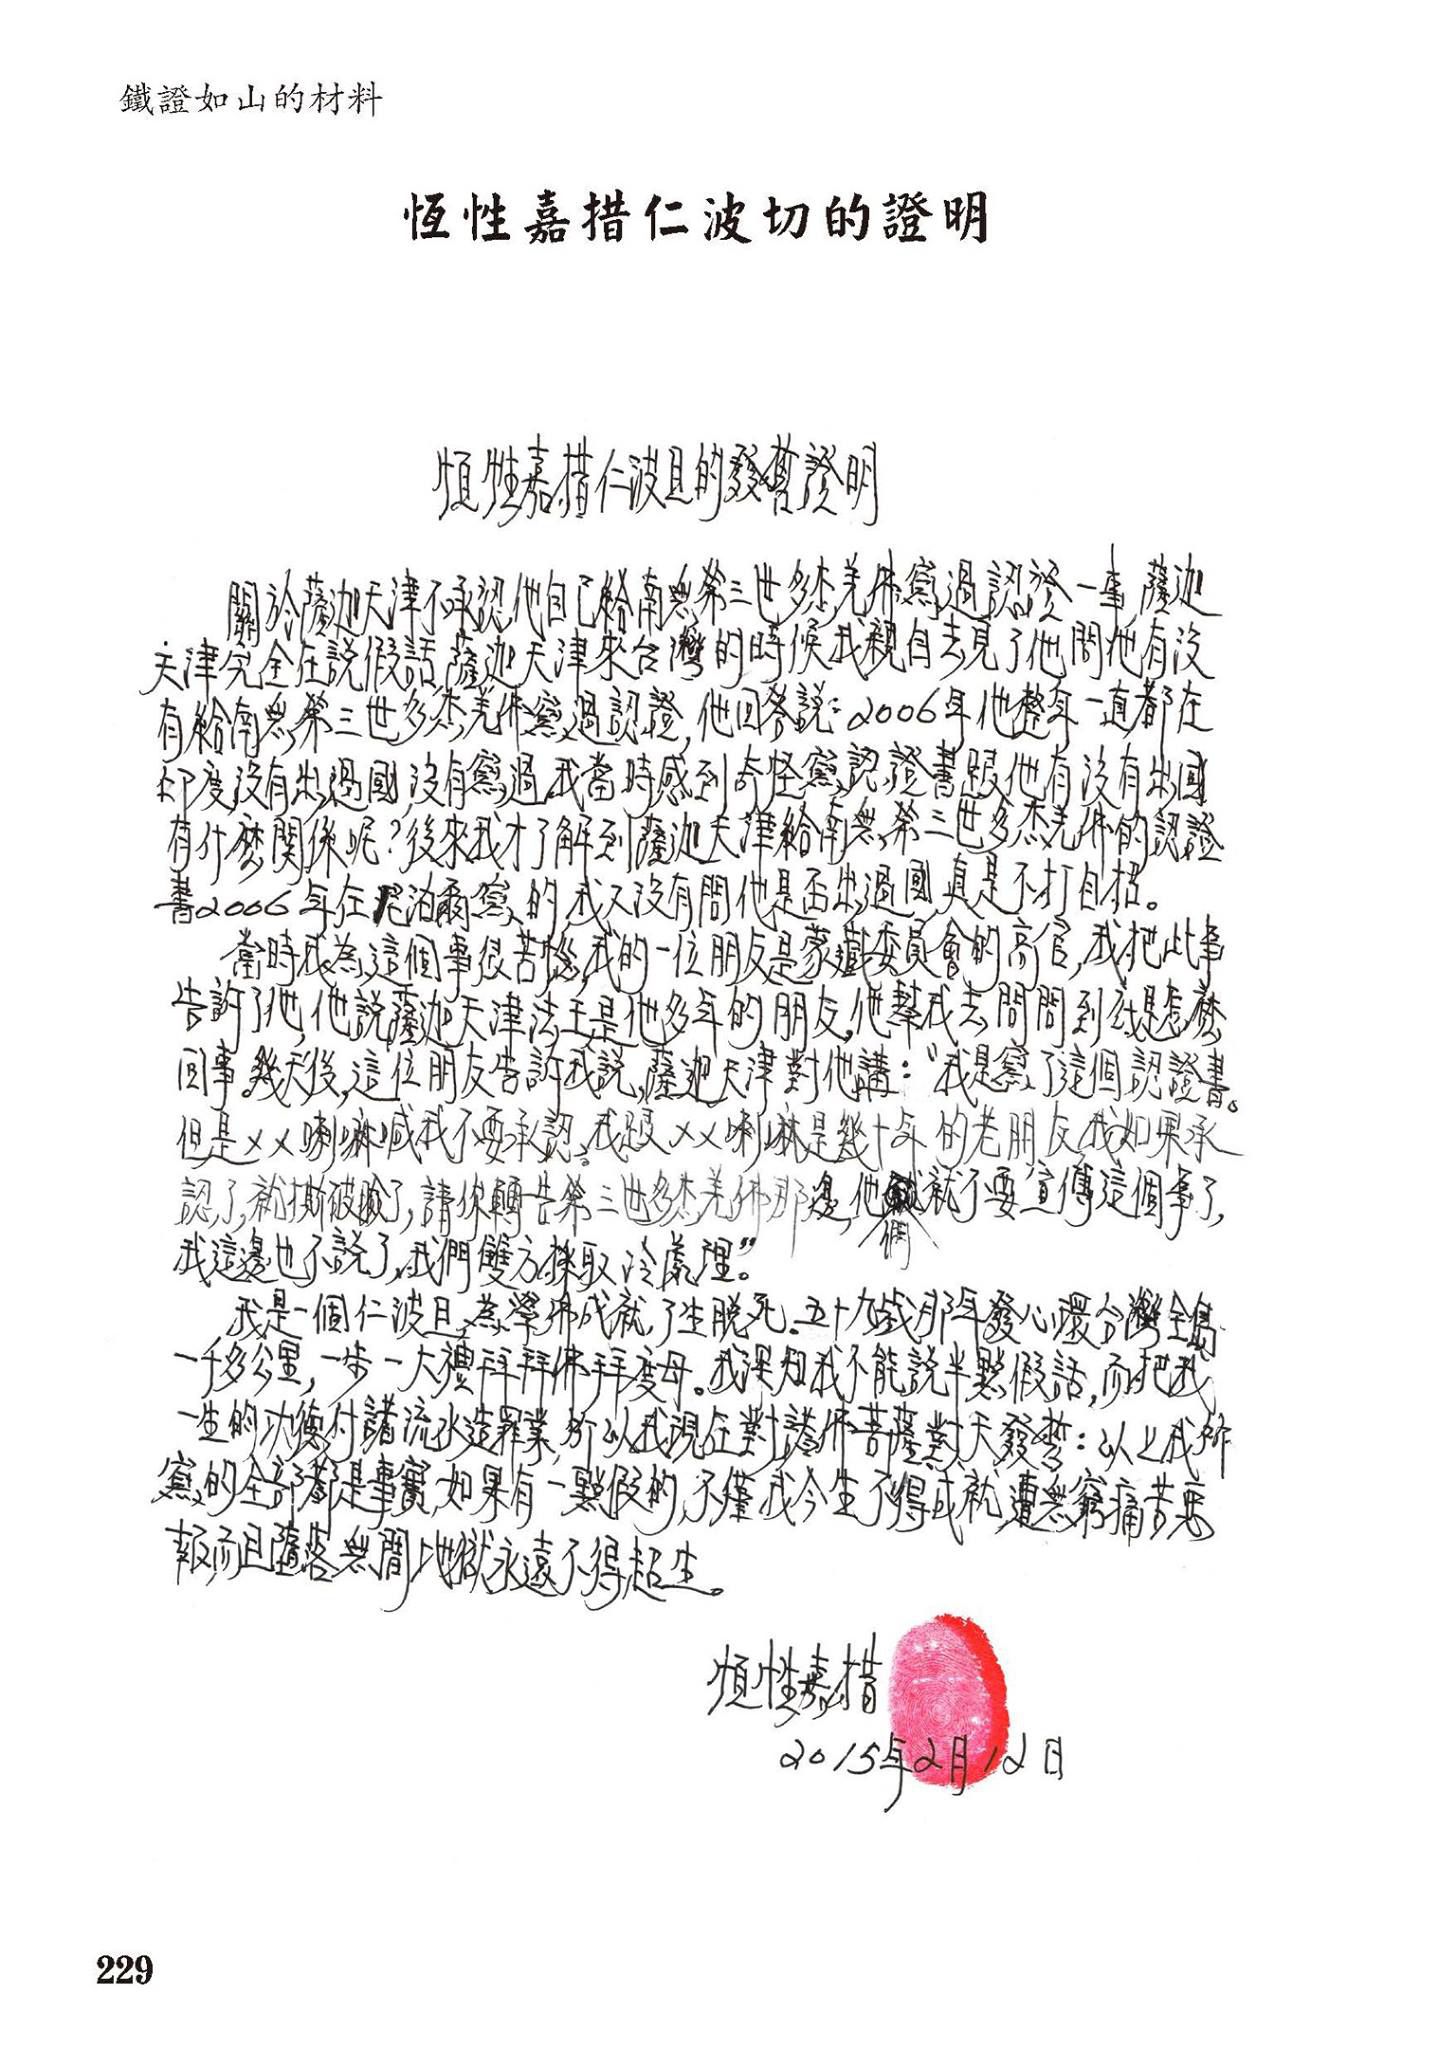 鐵證如山的材料
恆性嘉措仁波切的證明
恒性嘉措仁波且的發誓證明
關於薩迦天津不承認他自己給南無第三世多杰羌佛寫過認證一事薩迦
天津完全在説假話,薩迦天津來台灣的時候我親自去見了他問他有沒
有給南無第三世多杰羌佛寫過認證,他回答説:2006年他整年一直都在
印度沒有出過國,沒有寫過.我當時感到奇怪寫認證書跟他有沒有出國
有什麼關係呢?後來我才了解到薩迦天津給南無第三世多杰羌佛的認證
書2006年在尼泊爾寫的,我又沒有問他是否出過國真是不打自招。
當時我為這個事很苦惱,我的一位朋友是蒙藏委員會的高官,我把此事
告訴了他,他説薩迦天津法王是他多年的朋友,他幫我去問問到底是怎麼
回事.幾天後,這位朋友告訴我説,薩迦天津對他講:"我是寫了這個認證書。
但是××喇嘛喊我不要承認。我跟××喇嘛是幾十年的老朋友,我如果承
認了,就撕破臉了,請你轉告第三世多杰羌佛那邊,他們就不要宣傳這個事了,
我這邊也不説了,我們雙方採取冷處理。"
我是一個仁波且,為學佛成就,了生脫死.五十九歲那年發心環台灣全島
一千多公里,一步一大禮拜拜佛拜度母。我深知我不能説半點假話,而把我
一生的功德付諸流水造罪業,所以我現在對諸佛菩薩對天發誓:以上我所
寫的全部都是事實,如果有一點假的,不僅我今生不得成就遭無窮痛苦惡
報而且墮落無間地獄永遠不得超生。
恒性嘉措
2015年2月12日
229